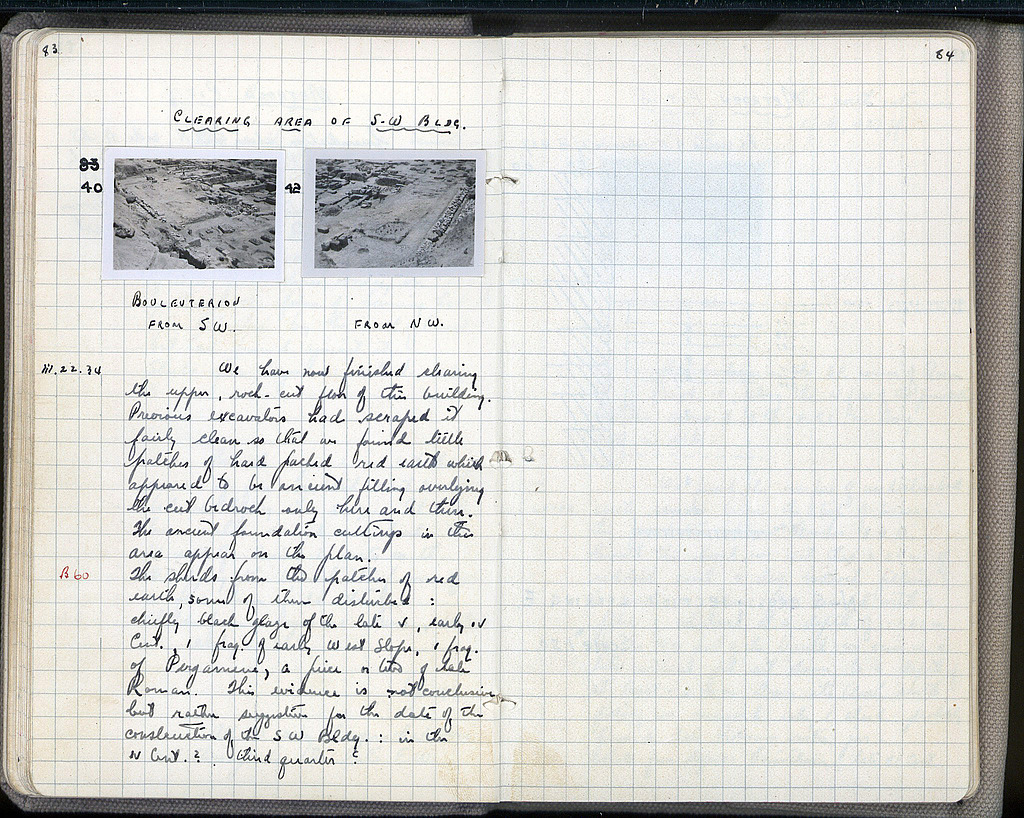 83
84
CLEARING AREA OF S-W BLDG.
83
40
42
BOULEUTERION
FROM SW.
FROM NW.
III.22.34
We have now finished clearing
the upper, rock-cut floor of this building.
Previous excavators had scraped it
fairly clean so that we found little
patches of hard packed red earth which
appeared to be ancient filling overlying
the cut bedrock only here and there.
The ancient foundation cuttings in this
area appear on the plan.
B60
The sherds from the patches of red
earth, some of them disturbed :
chiefly black glaze of the late V, early IV
Cent., 1 frag. of early West Slope, 1 frag.
of Pergamene, a piece or two of late
Roman. This evidence is not conclusive
but rather suggestive for the date of the
construction of the SW Bldg. : in the
IV Cent. ? third quarter ?